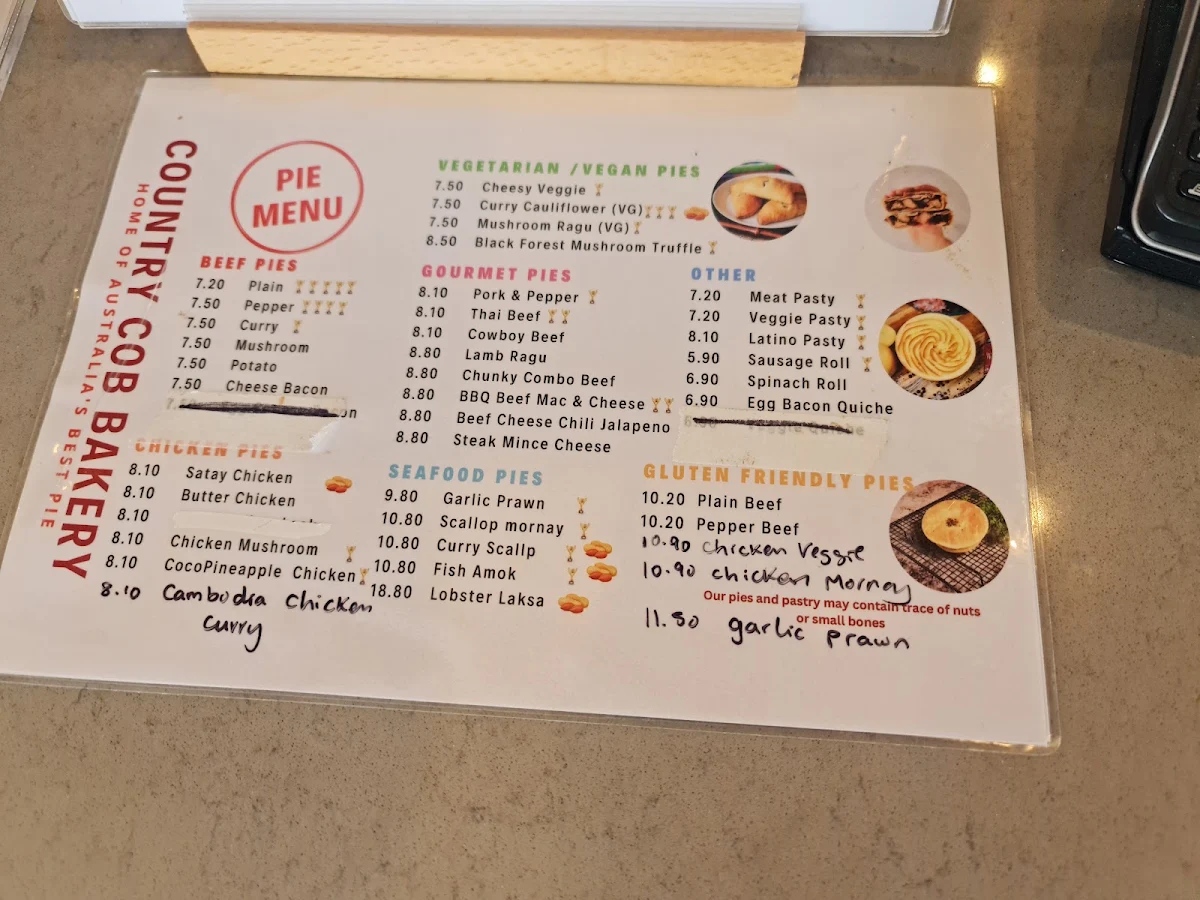 COUNTRY COB BAKERY
HOME OF AUSTRALIA'S BEST PIE
PIE
MENU
BEEF PIES
7.20 Plain
7.50 Pepper
7.50 Curry
7.50 Mushroom
7.50 Potato
7.50 Cheese Bacon
CHICKEN PIES
8.10 Satay Chicken
8.10 Butter Chicken
8.10
8.10 Chicken Mushroom
8.10 CocoPineapple Chicken
8.10 Cambodia Chicken
curry
VEGETARIAN /VEGAN PIES
7.50 Cheesy Veggie
7.50 Curry Cauliflower (VG)
7.50 Mushroom Ragu (VG)
8.50 Black Forest Mushroom Truffle
GOURMET PIES
8.10 Pork & Pepper
8.10 Thai Beef
8.10 Cowboy Beef
8.80 Lamb Ragu
8.80 Chunky Combo Beef
8.80 BBQ Beef Mac & Cheese
8.80 Beef Cheese Chili Jalapeno
8.80 Steak Mince Cheese
SEAFOOD PIES
9.80 Garlic Prawn
10.80 Scallop mornay
10.80 Curry Scallp
10.80 Fish Amok
18.80 Lobster Laksa
OTHER
7.20 Meat Pasty
7.20 Veggie Pasty
8.10 Latino Pasty
5.90 Sausage Roll
6.90 Spinach Roll
6.90 Egg Bacon Quiche
Veggie Quiche
GLUTEN FRIENDLY PIES
10.20 Plain Beef
10.20 Pepper Beef
10.90 chicken Veggie
10.90 chicken Mornay
Our pies and pastry may contain trace of nuts
or small bones
11.50 garlic prawn